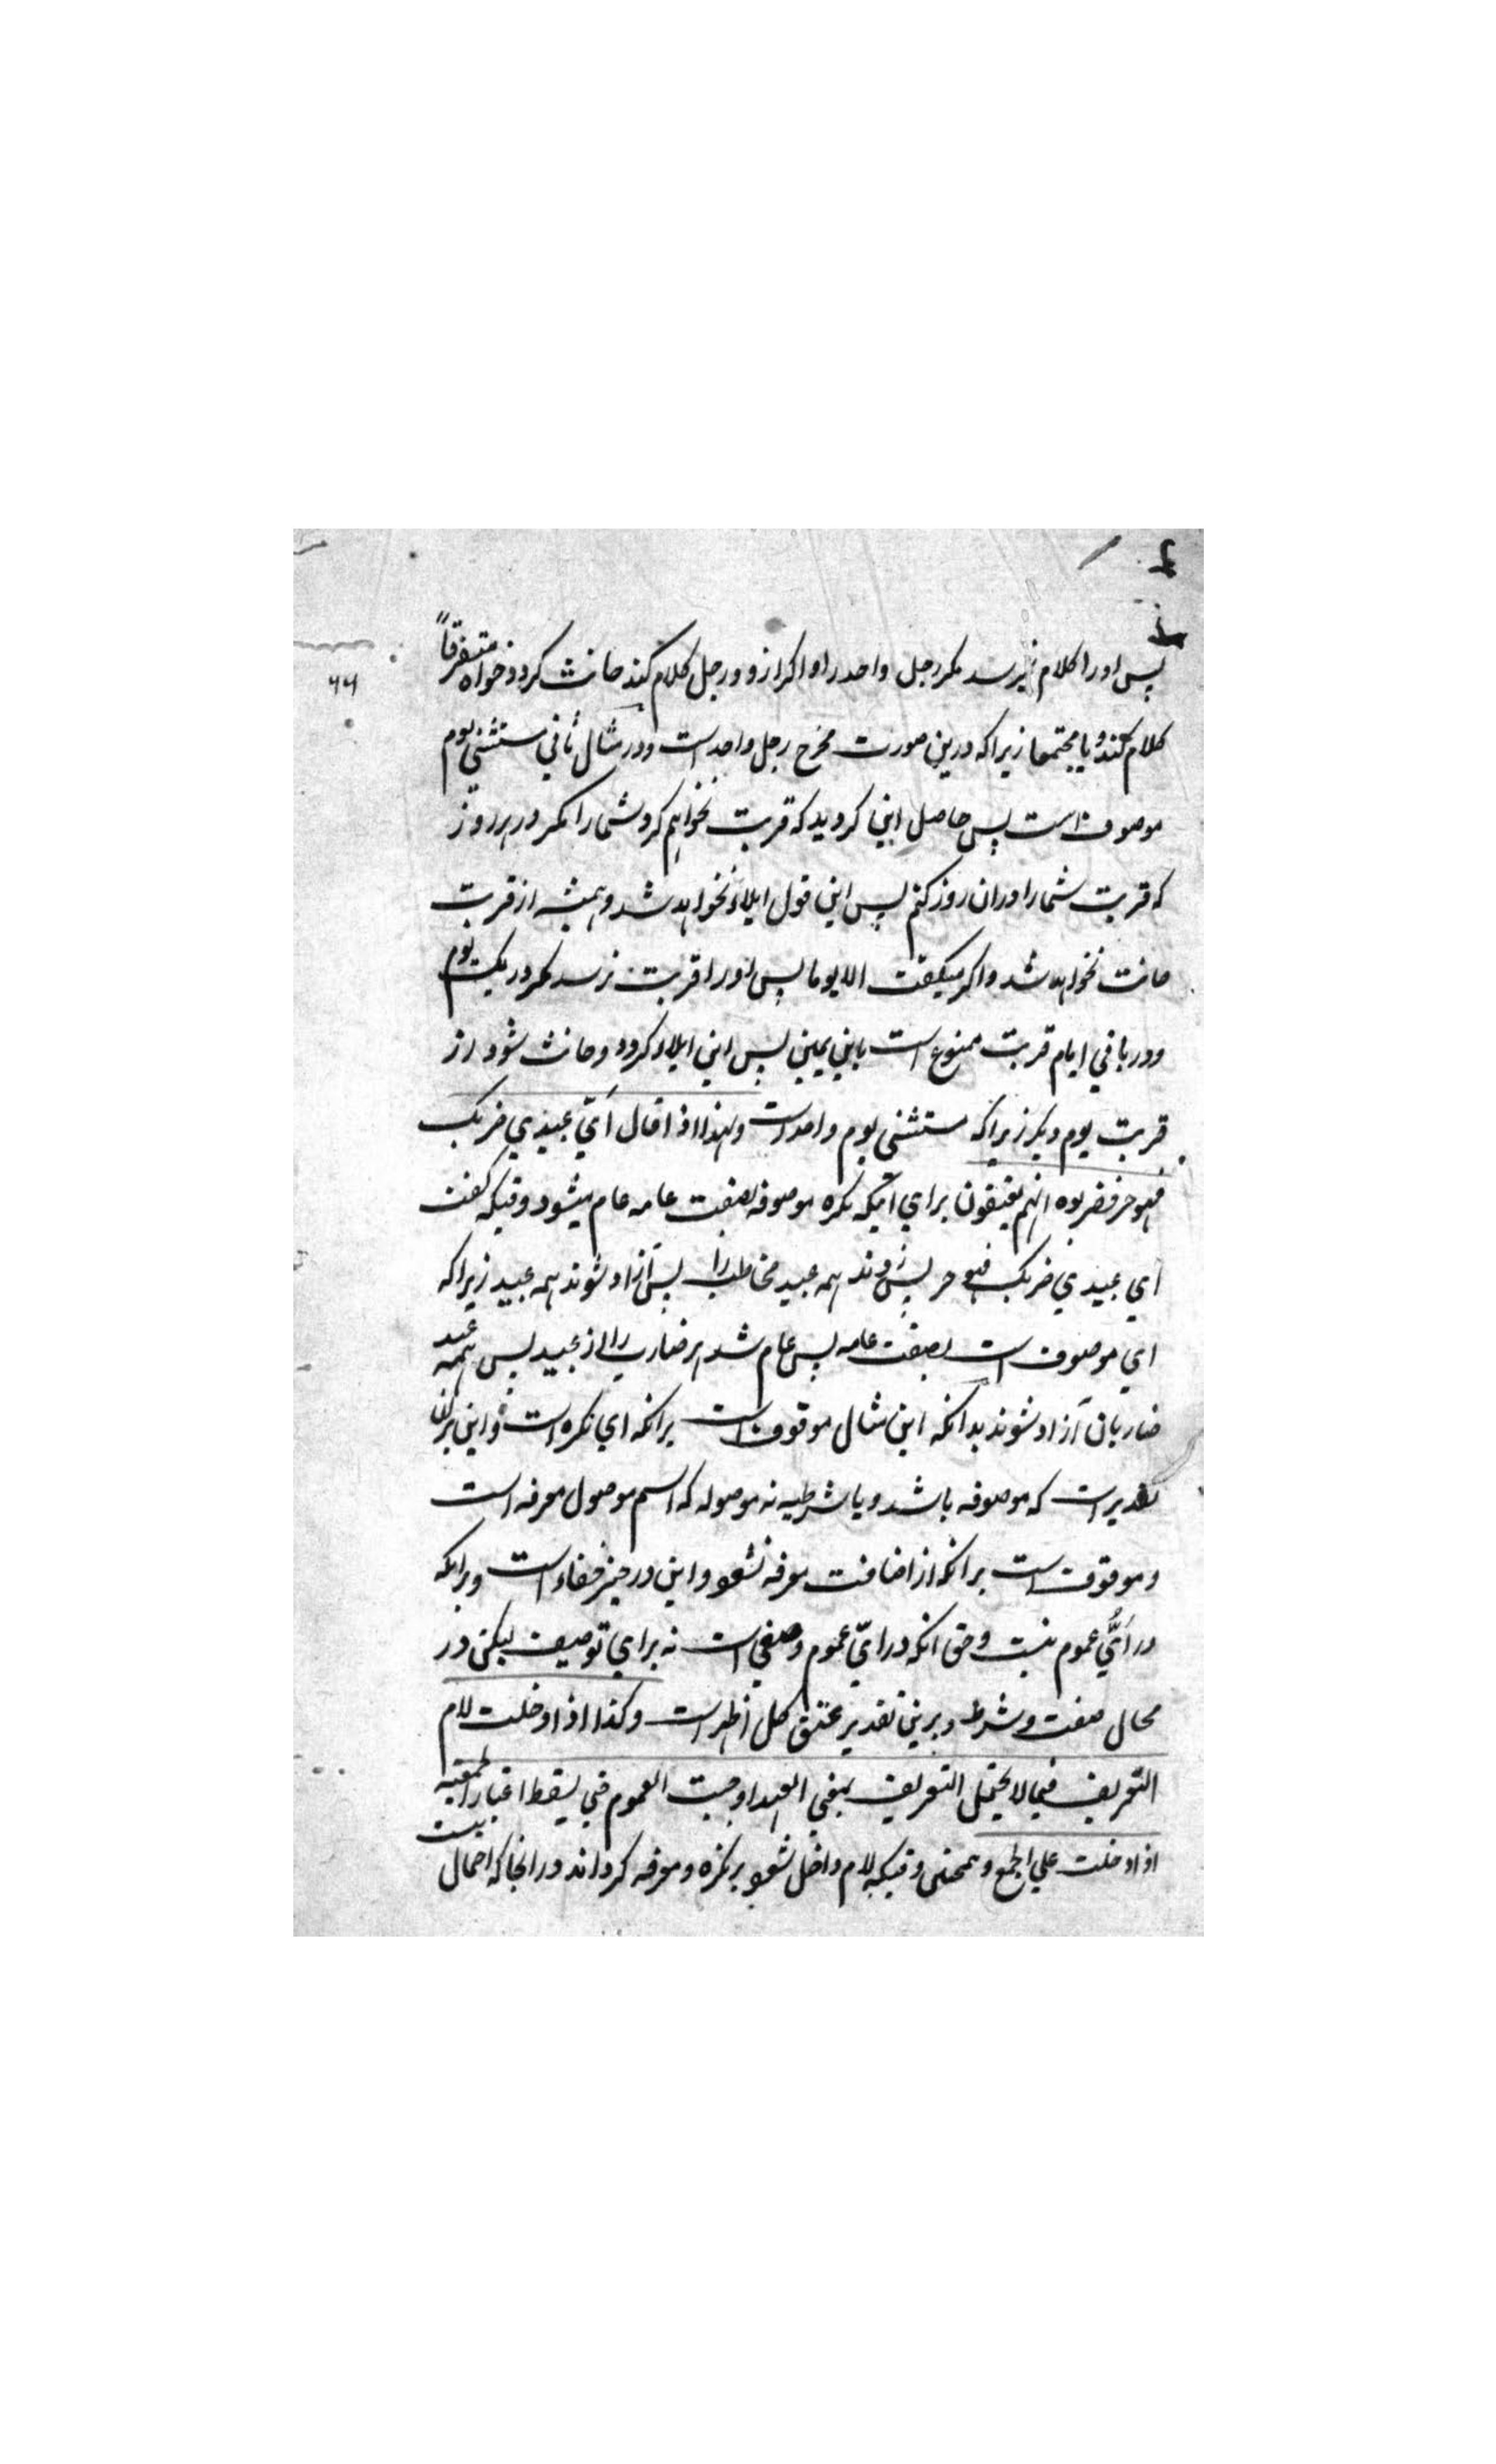 پس اورا کلام نرسد مکر رجل واحد را و اکر از دو رجل کلام کند حانث کردد خواه متفرقاً
کلام کند و یا مجتمعا زیراکه درین صورت مخرج رجل واحد است و در مثال ثانی مستثنی یوم
موصوف است پس حاصل این کردید که قربت نخواهم کرد شما را مکر در هر روز
که قربت شما را در ان روز کنم پس این قول ایلاء نخواهد شد و همیشه از قربت
حانث نخواهد شد و اکر میکفت الا یوما پس اورا قربت نرسد مکر در یک یوم
و در باقی ایام قربت ممنوع است باین یمین پس این ایلاء کردد و حانث شود از
قربت یوم دیکر زیراکه مستثنی یوم واحد است ولهذا اذا قال أیّ عبیدی ضربک
فهو حر فضربوه انهم یعتقون برای آنکه نکره موصوفه بصفت عامه عام میشود وقتیکه کفت
ای عبیدی ضربک فهو حر پس زدند همه عبید مخاطب را پس آزاد شوند همه عبید زیراکه
ای موصوف است بصفت عامه پس عام شد هر ضارب را از عبید پس همه عبید
ضاربان آزاد شوند بدانکه این مثال موقوف است برانکه ای نکره است و این بران
تقدیر است که موصوفه باشد و یا شرطیه نه موصوله که اسم موصول معرفه است
و موقوف است برانکه از اضافت معرفه نشود و این در حیز خفاء است و برانکه
در أیّ عموم نیست و حق انکه در ایّ عموم وضعی است نه برای توصیف لیکن در
محال صفت و شرط و برین تقدیر عتق کل اظهر است وکذا اذا دخلت لام
التعریف فیما لا یحتمل التعریف بمعنی العهد اوجبت العموم حتی یسقط اعتبار الجمعیة
اذا دخلت علی الجمع و همچنین وقتیکه لام داخل شود بر نکره و معرفه کرداند در انجا که احتمال نیست
۶۶